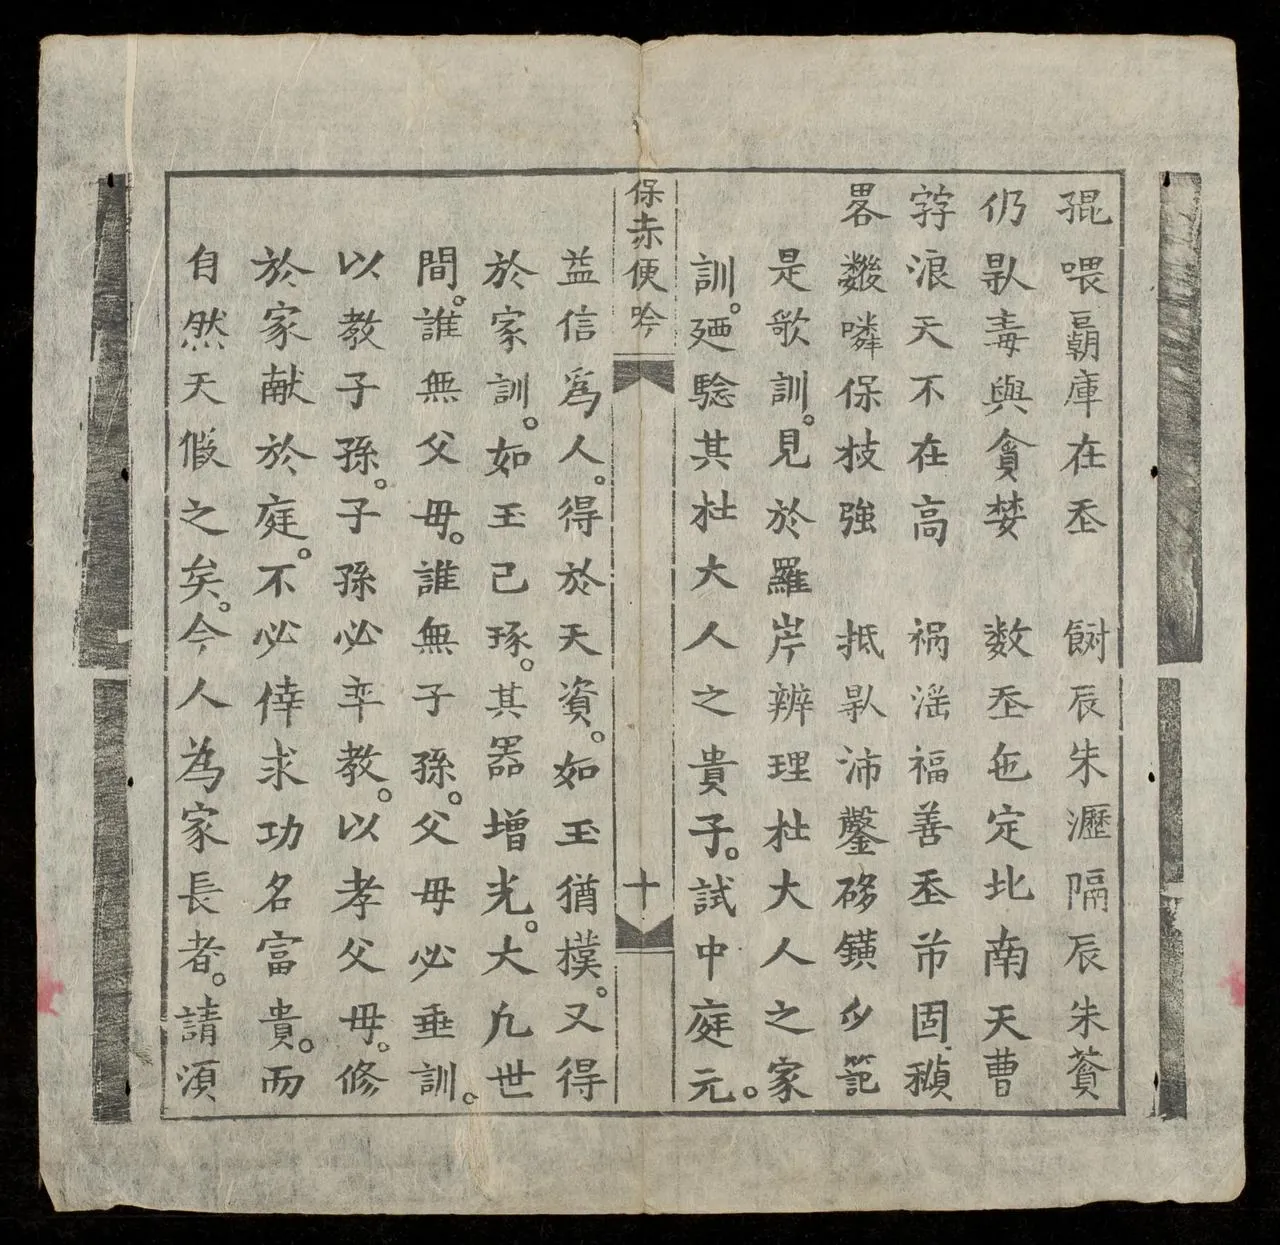 猑喂霸庫在丕　餶辰朱瀝隔辰朱蒼
仍𣋚毒與貪婪　数丕乜定北南天曹
𥯉浪天不在高　禍滛福善丕𢁑固
畧𠄩嘺保技強　抵𣋚沛鑿𥓳鐄𠆳範
是歌訓。見於羅岸辨理杜大人之家
訓。廼騐其杜大人之貴子。試中庭元。
保赤便吟
十
益信爲人。得於天資。如玉猶樸。又得
於家訓。如玉已琢。其器增光。大九世
間。誰無父毋。誰無子孫。父毋必垂訓。
以教子孫。子孫必卒教。以孝父毋。修
於家献於庭。不必倖求功名富貴。而
自然天假之矣。今人為家長者。請湏